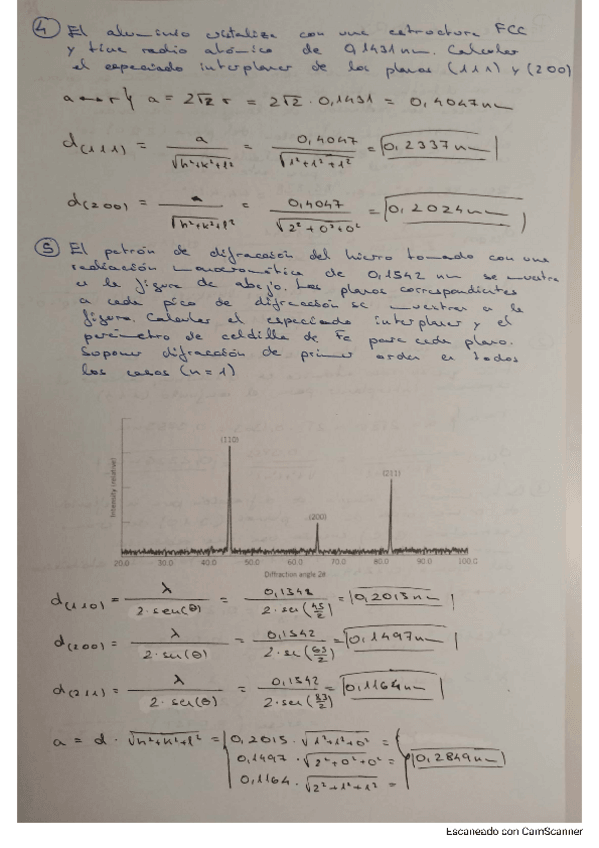 4 El aluminio cristaliza con una estructura FCC
y tiene radio atómico de 0,1431 nm. Calcular
el espaciado interplanar de los planos (111) y (200)
a ↔ r } a = 2√2 r = 2√2 · 0,1431 = 0,4047 nm
d(111) = a / √h²+k²+l² = 0,4047 / √1²+1²+1² = 0,2337 nm
d(200) = a / √h²+k²+l² = 0,4047 / √2²+0²+0² = 0,2024 nm
5 El patrón de difracción del hierro tomado con una
radiación monocromática de 0,1542 nm se muestra
en la figura de abajo. Los planos correspondientes
a cada pico de difracción se muestran en la
figura. Calcular el espaciado interplanar y el
parámetro de celdilla de Fe para cada plano.
Suponer difracción de primer orden en todos
los casos (n=1)
(110)
(211)
(200)
Intensity (relative)
20.0 30.0 40.0 50.0 60.0 70.0 80.0 90.0 100.0
Diffraction angle 2θ
d(110) = λ / 2·sen(θ) = 0,1542 / 2·sen(45/2) = 0,2015 nm
d(200) = λ / 2·sen(θ) = 0,1542 / 2·sen(/2) = 0,1497 nm
d(211) = λ / 2·sen(θ) = 0,1542 / 2·sen(83/2) = 0,1164 nm
a = d · √h²+k²+l² = 0,2015 · √1²+1²+0² =
0,1497 · √2²+0²+0² = 0,2849 nm
0,1164 · √2²+1²+1² =
Escaneado con CamScanner